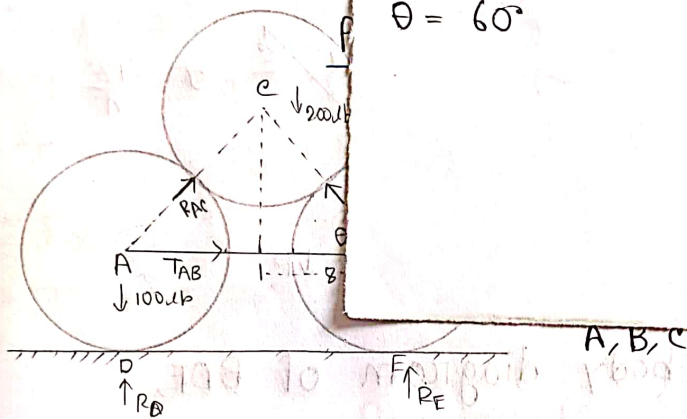 θ = 60°
P
C
↓200lb
RAC
θ
A
TAB
1
8
↓100lb
A, B, C
D
E
↑RD
↑RE